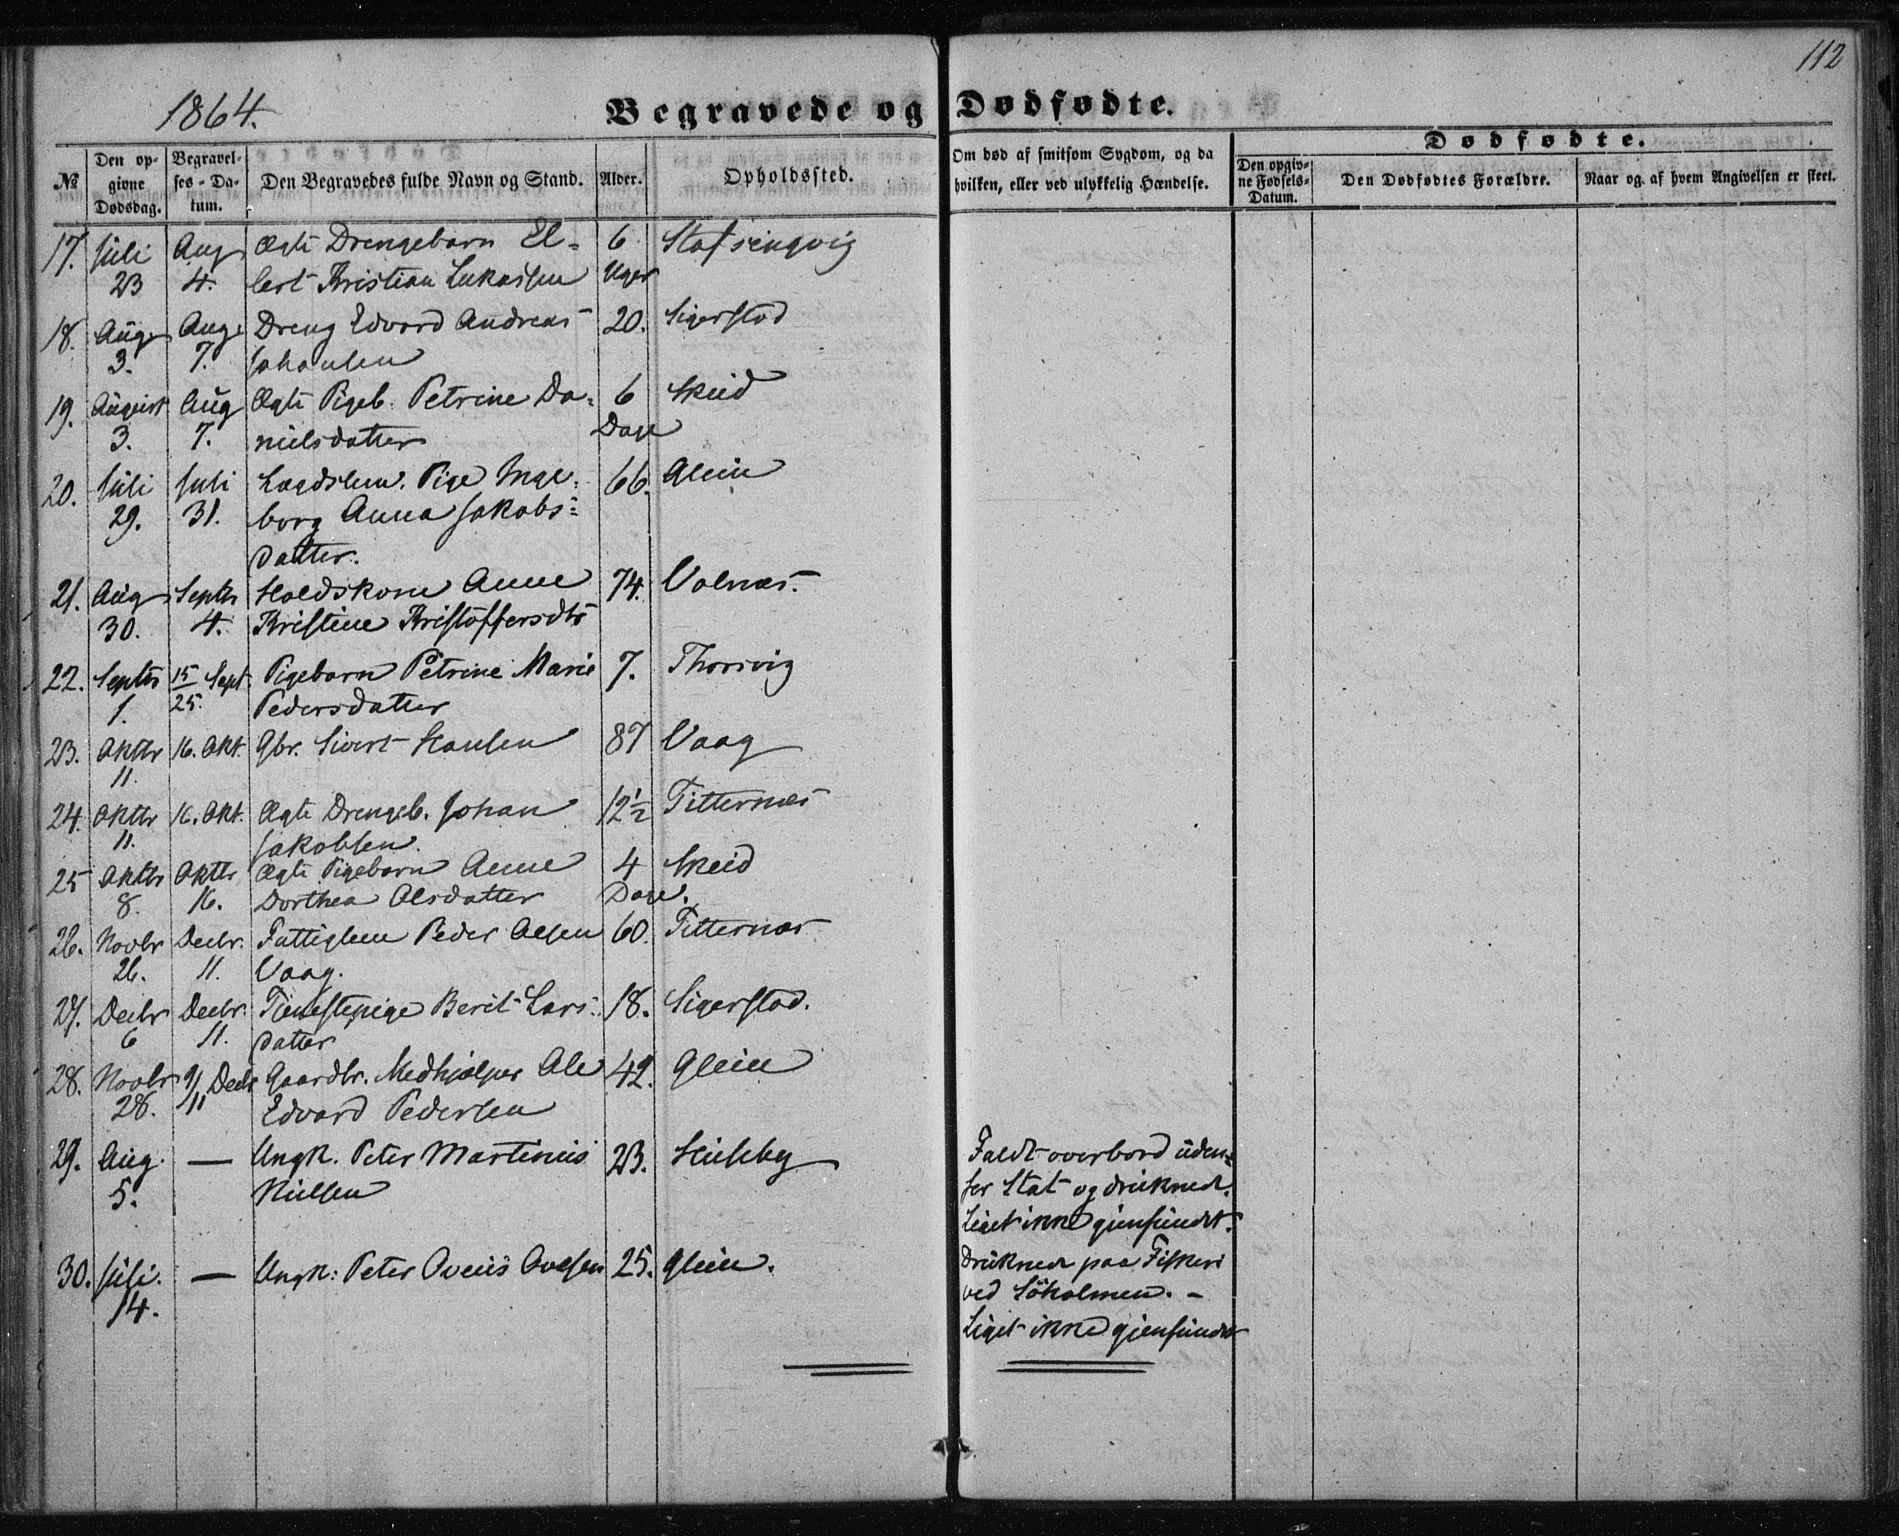 112
1864.
Begravede og Dødfødte.
Dødfødte.
№
Den opgivne Dødsdag.
Begravelses-Datum.
Den Begravedes fulde Navn og Stand.
Alder.
Opholdssted.
Om død af smitsom Sygdom, og da hvilken, eller ved ulykkelig Hændelse.
Den opgivne Fødsels-Datum.
Den Dødfødtes Forældre.
Naar og af hvem Angivelsen er skeet.
17. Juli Aug Ægte Drengebarn El- 6
23 4. lert Kristian Lukassen Uger
18. Aug Aug Dreng Edvard Andreas 20. Sigerstad
3. 7. Johansen
19. August Aug Ægte Pigeb. Petrine Da- 6 Skeid
3. 7. nielsdatter Dage
20. Juli Juli Lægdslem. Pige Inge- 66. Glein
29. 31. borg Anna Jakobs-
datter.
21. Aug Septbr Anne 74. Valnæs.
30. 4. Kristine Kristoffersdtr
22. Septbr 15/25 Sept. Pigebarn Petrine Marie 7. Thorsvig
1. Pedersdatter
23. Oktbr 16. Okt. Gbr. Sivert Hansen 87 Vaag
11.
24. Oktbr 16. Okt. Ægte Drengeb. Johan 12½ Titternæs
11. Jakobsen.
25 Oktbr Oktbr Ægte Pigebarn Anne 4 Skeid
8. 16. Dorthea Olsdatter Dage.
26. Novbr Decbr. Fattiglem Peder Olsen 60. Titternæs
26. 11. Vaag.
27. Decbr Decbr. Tjenestepige Berit Lars- 18. Sigerstad.
6 11. datter
28. Novbr 9/11 Decbr Gaardbr. Medhjælper Ole 42. Glein
28. Edvard Pedersen
29. Aug. — Ungk. Peter Martinus 23. Huseby Faldt overbord uden-
5. Nielsen for Stat og druknede.
Liget ikke gjenfundet.
30. Juli. — Ungk: Peter Oveus Ovesen 25. Glein. Druknede paa Fiskeri
14. ved Söholmen. –
Liget ikke gjenfundet